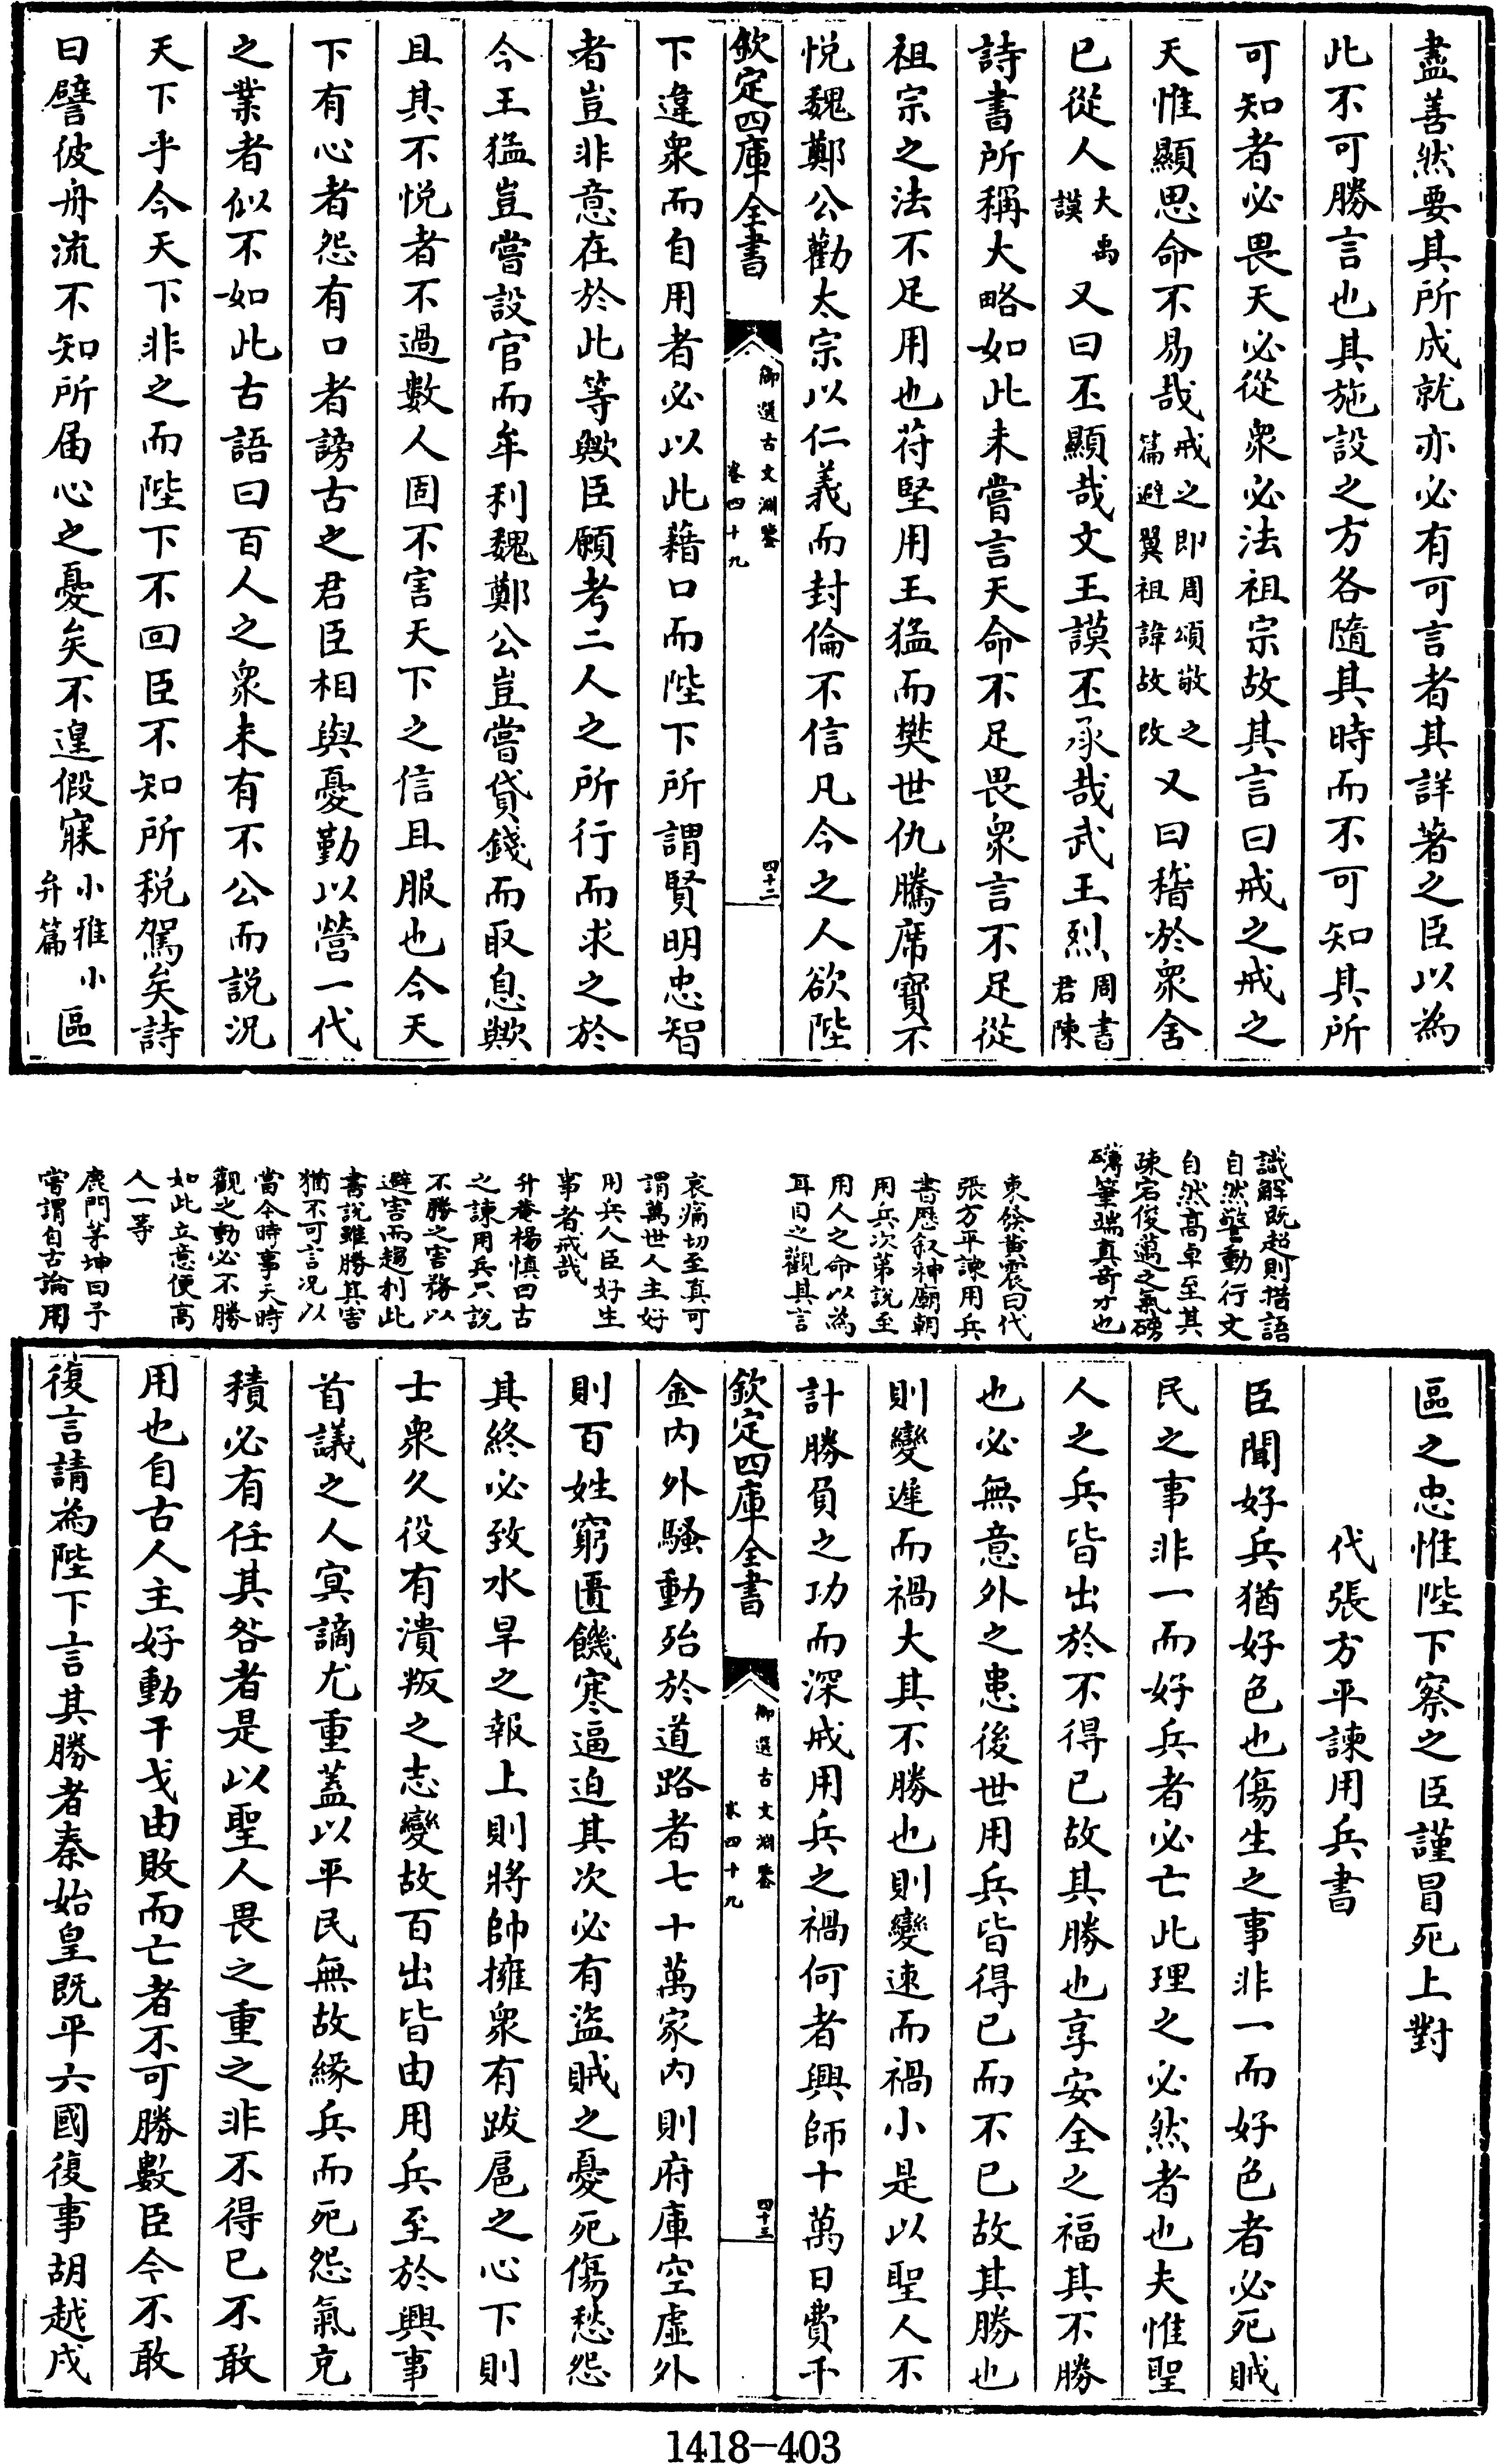 盡善然要其所成就亦必有可言者其詳著之臣以為
此不可勝言也其施設之方各隨其時而不可知其所
可知者必畏天必從衆必法祖宗故其言曰戒之戒之
天惟顯思命不易哉戒之即周頌敬之
篇避翼祖諱故改又曰稽於衆舍
已從人大禹
謨又曰丕顯哉文王謨丕承哉武王烈周書
君陳
詩書所稱大略如此未嘗言天命不足畏衆言不足從
祖宗之法不足用也苻堅用王猛而樊世仇騰席寶不
悅魏鄭公勸太宗以仁義而封倫不信凡今之人欲陛
欽定四庫全書
御選古文淵鑒
卷四十九
四十二
下違衆而自用者必以此藉口而陛下所謂賢明忠智
者豈非意在於此等歟臣願考二人之所行而求之於
今王猛豈嘗設官而牟利魏鄭公豈嘗貸錢而取息歟
且其不悅者不過數人固不害天下之信且服也今天
下有心者怨有口者謗古之君臣相與憂勤以營一代
之業者似不如此古語曰百人之衆未有不公而說況
天下乎今天下非之而陛下不回臣不知所稅駕矣詩
曰譬彼舟流不知所届心之憂矣不遑假寐小雅小
弁篇區
識解既超則措語
自然警動行文
自然高卓至其
疎宕俊邁之氣磅
礴筆端真奇才也
東發黄震曰代
張方平諫用兵
書歴叙神廟朝
用兵次第說至
用人之命以為
耳目之觀其言
哀痛切至真可
謂萬世人主好
用兵人臣好生
事者戒哉
升菴楊慎曰古
之諫用兵只說
不勝之害務以
避害而趨利此
書說雖勝其害
猶不可言况以
當今時事天時
觀之動必不勝
如此立意便高
人一等
鹿門茅坤曰予
嘗謂自古論用
區之忠惟陛下察之臣謹冒死上對
代張方平諫用兵書
臣聞好兵猶好色也傷生之事非一而好色者必死賊
民之事非一而好兵者必亡此理之必然者也夫惟聖
人之兵皆出於不得已故其勝也享安全之福其不勝
也必無意外之患後世用兵皆得已而不已故其勝也
則變遲而禍大其不勝也則變速而禍小是以聖人不
計勝負之功而深戒用兵之禍何者興師十萬日費千
欽定四庫全書
御選古文淵鑒
卷四十九
四十三
金內外騷動殆於道路者七十萬家內則府庫空虛外
則百姓窮匱饑寒逼迫其次必有盜賊之憂死傷愁怨
其終必致水旱之報上則將帥擁衆有跋扈之心下則
士衆久役有潰叛之志變故百出皆由用兵至於興事
首議之人冥謫尤重蓋以平民無故緣兵而死怨氣充
積必有任其咎者是以聖人畏之重之非不得已不敢
用也自古人主好動干戈由敗而亡者不可勝數臣今不敢
復言請為陛下言其勝者秦始皇既平六國復事胡越戍
1418-403